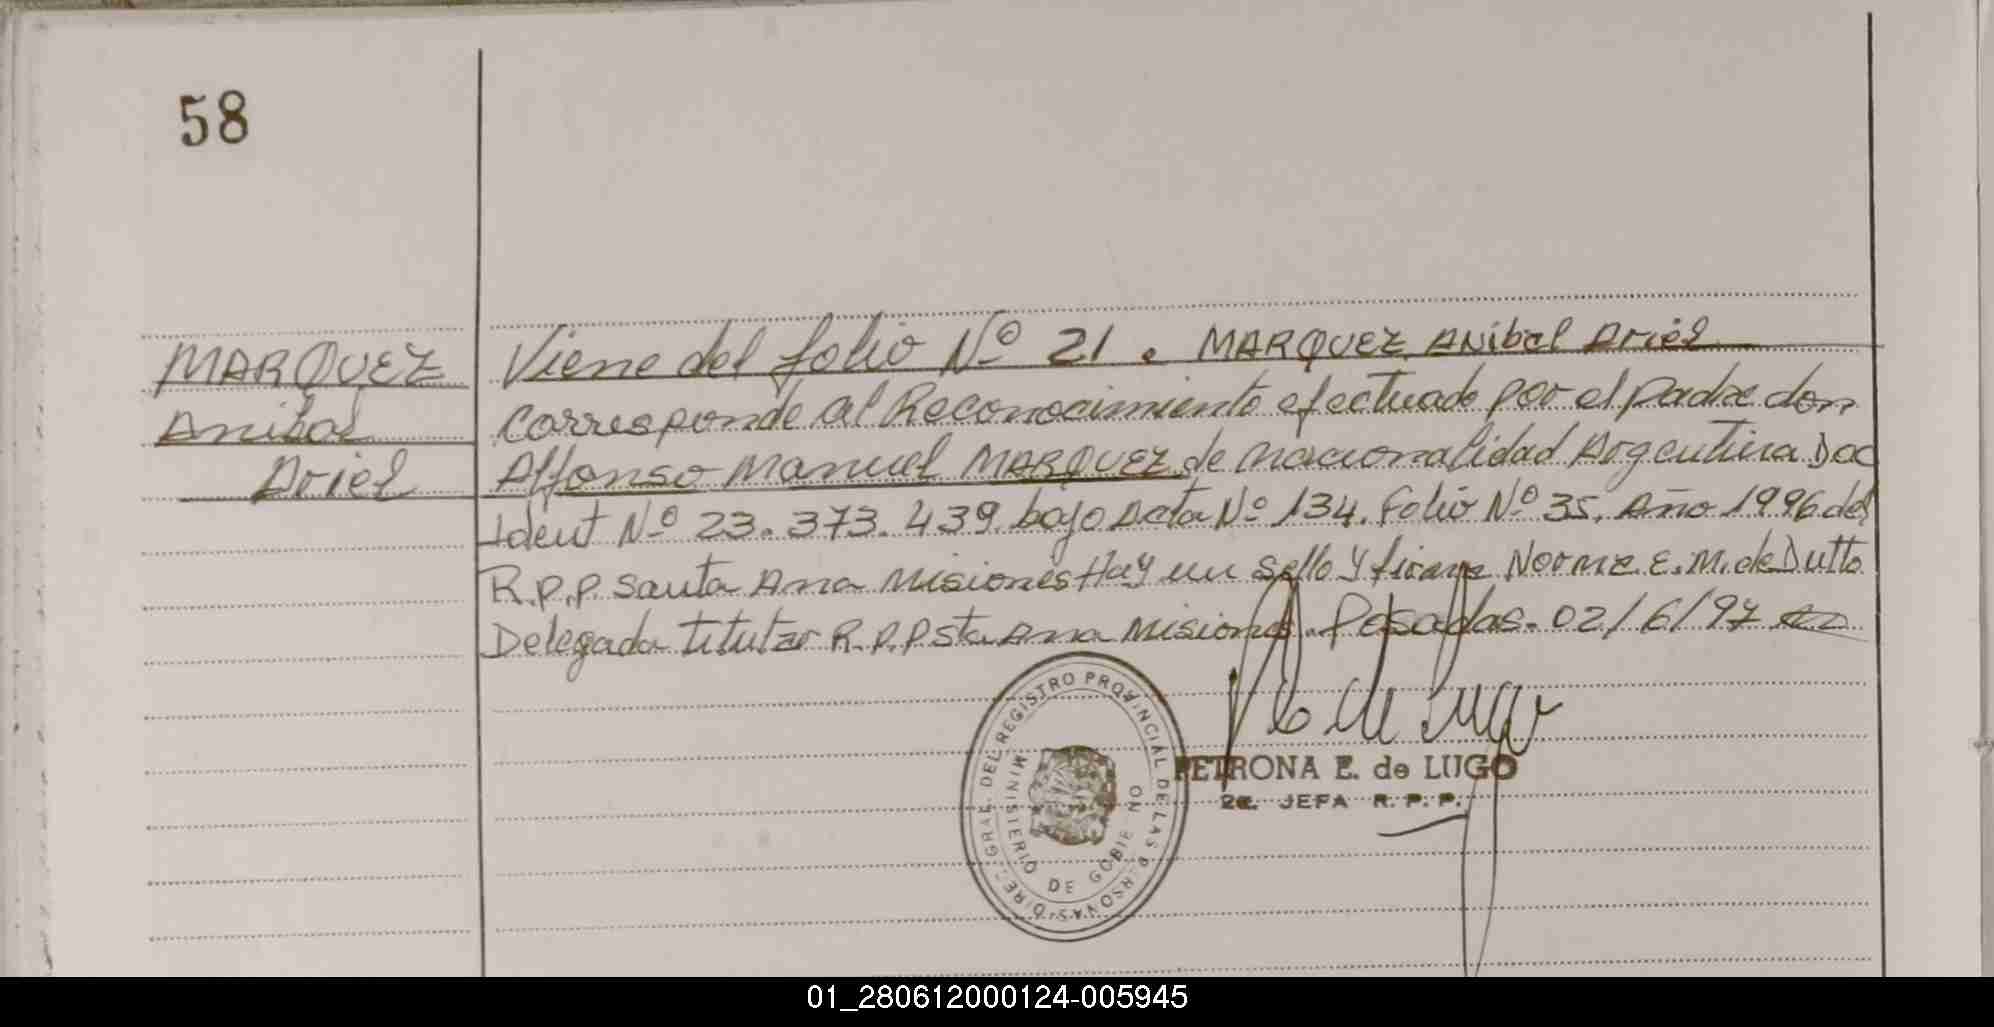 58
MARQUEZ
Anibal
Ariel
Viene del folio Nº 21. MARQUEZ Anibal Ariel
Corresponde al Reconocimiento efectuado por el padre don
Alfonso Manuel MARQUEZ de nacionalidad Argentina Doc
Ident Nº 23.373.439 bajo Acta Nº 134. Folio Nº 35. Año 1996 del
R.P.P. Santa Ana Misiones Hay un Sello y firma Norma E. M. de Dutto
Delegada titular R.P.P Sta Ana Misiones. Posadas. 02/6/97
P E de Lugo
PETRONA E. de LUGO
2a. JEFA R. P. P.
DIREC. GRAL. DEL REGISTRO PROVINCIAL DE LAS PERSONAS
MINISTERIO DE GOBIERNO
01_280612000124-005945